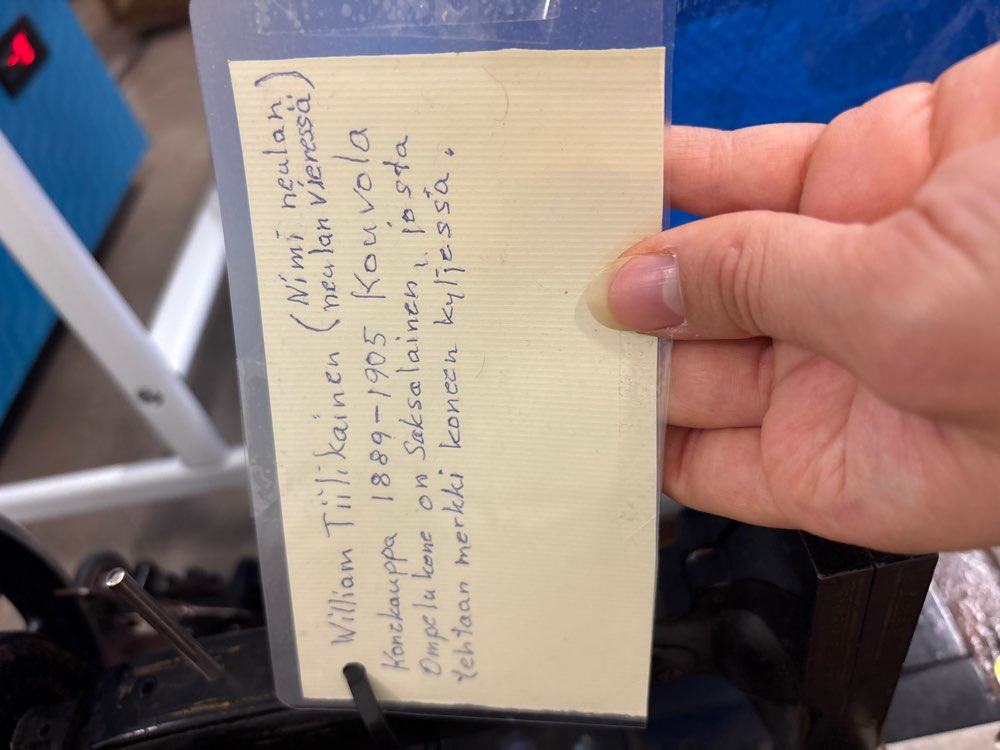 (Nimi neulan
William Tiilikainen (neulan vieressä)
Konekauppa 1889-1905 Kouvola
Ompelukone on Saksalainen, josta
tehtaan merkki koneen kyljessä.